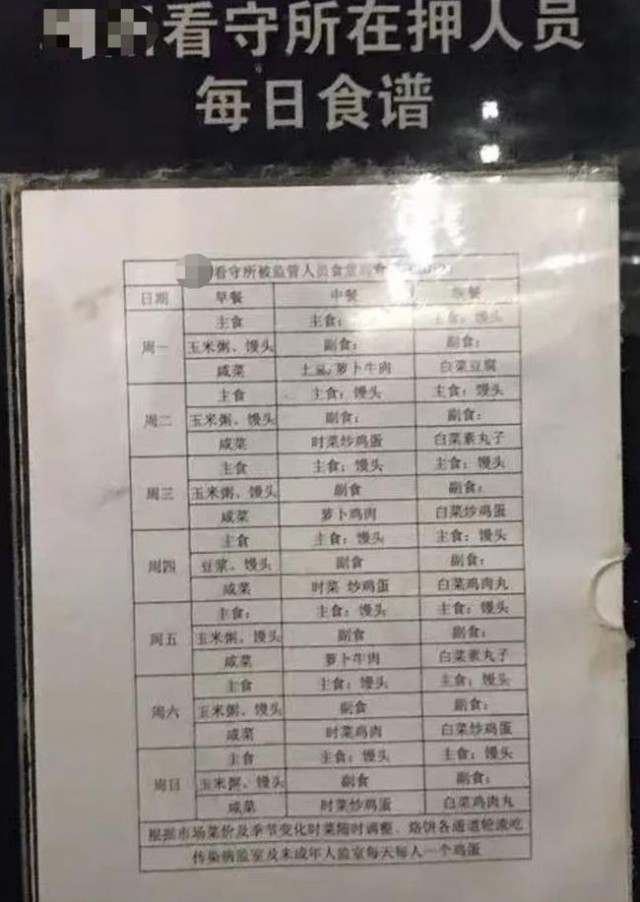 看守所在押人员
每日食谱
看守所被监管人员食堂
日期 早餐 中餐 晚餐
主食 主食: 主食:馒头
周一 玉米粥、馒头 副食: 副食:
咸菜 土豆萝卜牛肉 白菜豆腐
主食 主食:馒头 主食:馒头
周二 玉米粥、馒头 副食: 副食:
咸菜 时菜炒鸡蛋 白菜素丸子
主食 主食:馒头 主食:馒头
周三 玉米粥、馒头 副食 副食:
咸菜 萝卜鸡肉 白菜炒鸡蛋
主食 主食:馒头 主食:馒头
周四 豆浆、馒头 副食 副食:
咸菜 时菜 炒鸡蛋 白菜鸡肉丸
主食: 主食:馒头 主食:馒头
周五 玉米粥、馒头 副食 副食:
咸菜 萝卜牛肉 白菜素丸子
主食 主食:馒头 主食:馒头
周六 玉米粥、馒头 副食 副食:
咸菜 时菜鸡肉 白菜炒鸡蛋
主食 主食:馒头 主食:馒头
周日 玉米粥、馒头 副食 副食:
咸菜 时菜炒鸡蛋 白菜鸡肉丸
根据市场菜价及季节变化时菜随时调整、烙饼各通道轮流吃
传染病监室及未成年人监室每天每人一个鸡蛋